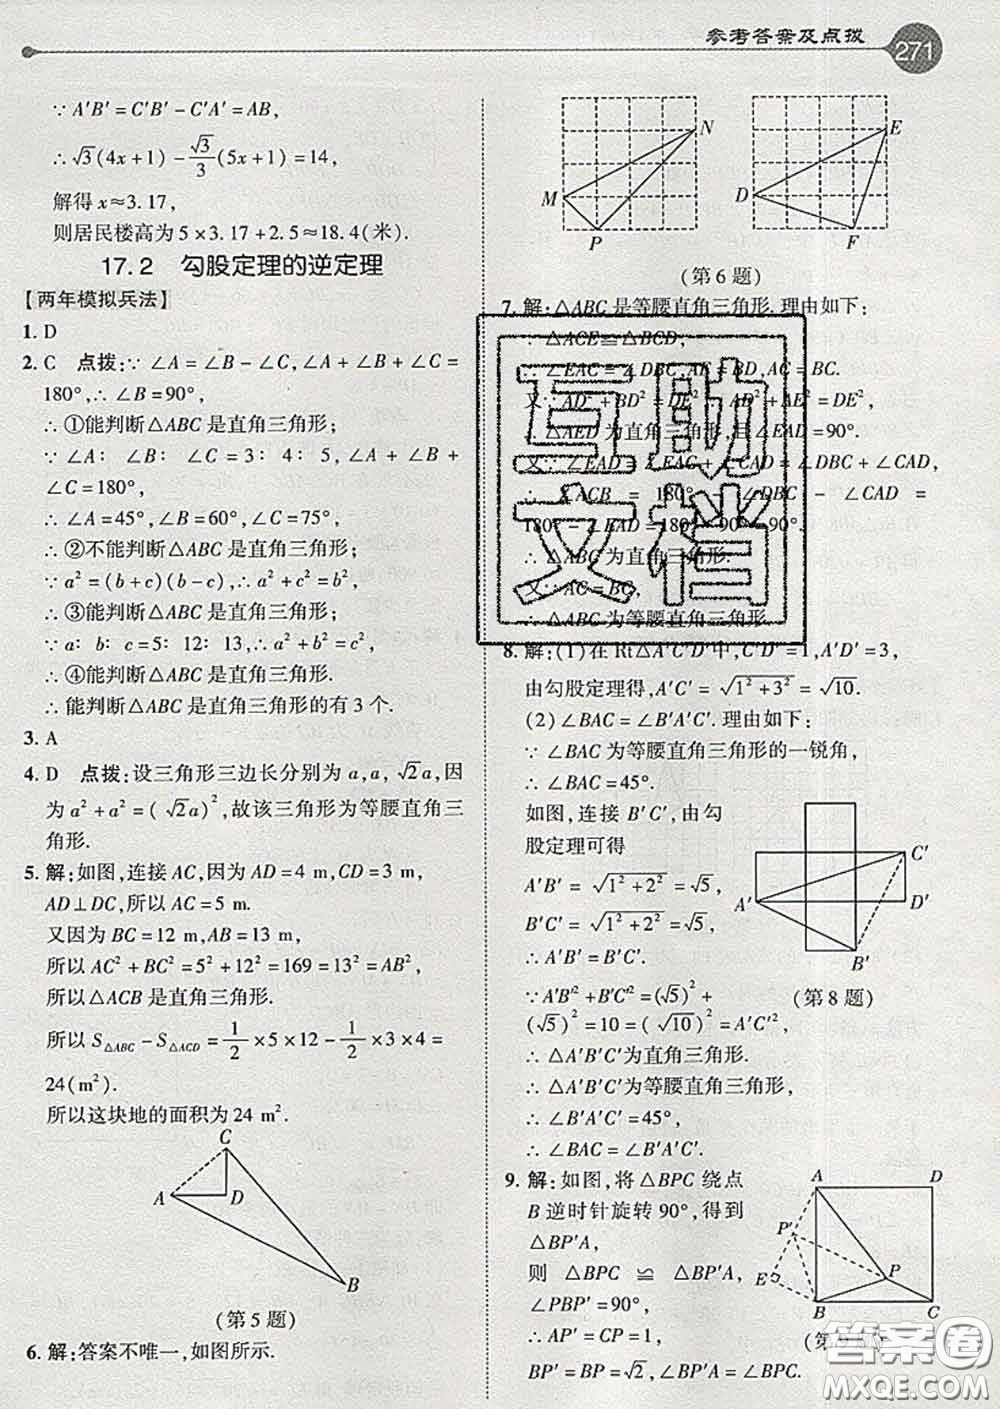 参考答案及点拨
271
∵ A′B′=C′B′-C′A′=AB,
∴ √3(4x+1)-√3/3(5x+1)=14,
解得 x≈3.17,
则居民楼高为 5×3.17+2.5≈18.4(米).
17.2 勾股定理的逆定理
【两年模拟兵法】
1. D
2. C 点拨:∵ ∠A=∠B-∠C,∠A+∠B+∠C=
180°,∴ ∠B=90°,
∴ ①能判断△ABC是直角三角形;
∵ ∠A∶∠B∶∠C=3∶4∶5,∠A+∠B+
∠C=180°,
∴ ∠A=45°,∠B=60°,∠C=75°,
∴ ②不能判断△ABC是直角三角形;
∵ a²=(b+c)(b-c),∴ a²+c²=b²,
∴ ③能判断△ABC是直角三角形;
∵ a∶b∶c=5∶12∶13,∴ a²+b²=c²,
∴ ④能判断△ABC是直角三角形.
∴ 能判断△ABC是直角三角形的有3个.
3. A
4. D 点拨:设三角形三边长分别为 a,a,√2a,因
为 a²+a²=(√2a)²,故该三角形为等腰直角三
角形.
5. 解:如图,连接AC,因为AD=4 m,CD=3 m,
AD⊥DC,所以AC=5 m.
又因为BC=12 m,AB=13 m,
所以AC²+BC²=5²+12²=169=13²=AB²,
所以△ACB是直角三角形.
所以S△ABC-S△ACD=1/2×5×12-1/2×3×4=
24(m²).
所以这块地的面积为24 m².
C
A
D
B
(第5题)
6. 解:答案不唯一,如图所示.
M
N
P
D
E
F
(第6题)
7. 解:△ABC是等腰直角三角形.理由如下:
∵ △ACE≌△BCD,
∴ ∠EAC=∠DBC,AE=BD,AC=BC.
又∵ AD²+BD²=DE²,∴ AD²+AE²=DE²,
∴ △AED为直角三角形,且∠EAD=90°.
又∵ ∠EAD=∠EAC+∠CAD=∠DBC+∠CAD,
∴ ∠ACB=180°-∠DBC-∠CAD=
180°-∠EAD=180°-90°=90°.
∴ △ABC为直角三角形.
又∵ AC=BC,
∴ △ABC为等腰直角三角形.
互助
文档
8. 解:(1)在Rt△A′C′D′中,C′D′=1,A′D′=3,
由勾股定理得,A′C′=√(1²+3²)=√10.
(2)∠BAC=∠B′A′C′.理由如下:
∵ ∠BAC为等腰直角三角形的一锐角,
∴ ∠BAC=45°.
如图,连接B′C′,由勾
股定理可得
A′B′=√(1²+2²)=√5,
B′C′=√(1²+2²)=√5,
∴ A′B′=B′C′.
∵ A′B′²+B′C′²=(√5)²+
(√5)²=10=(√10)²=A′C′²,
∴ △A′B′C′为直角三角形.
∴ △A′B′C′为等腰直角三角形,
∴ ∠B′A′C′=45°,
∴ ∠BAC=∠B′A′C′.
A′
C′
D′
B′
(第8题)
9. 解:如图,将△BPC绕点
B逆时针旋转90°,得到
△BP′A,
则△BPC≌△BP′A,
∠PBP′=90°,
∴ AP′=CP=1,
BP′=BP=√2,∠BP′A=∠BPC.
A
D
P′
P
E
B
C
答案圈
MXQE.COM